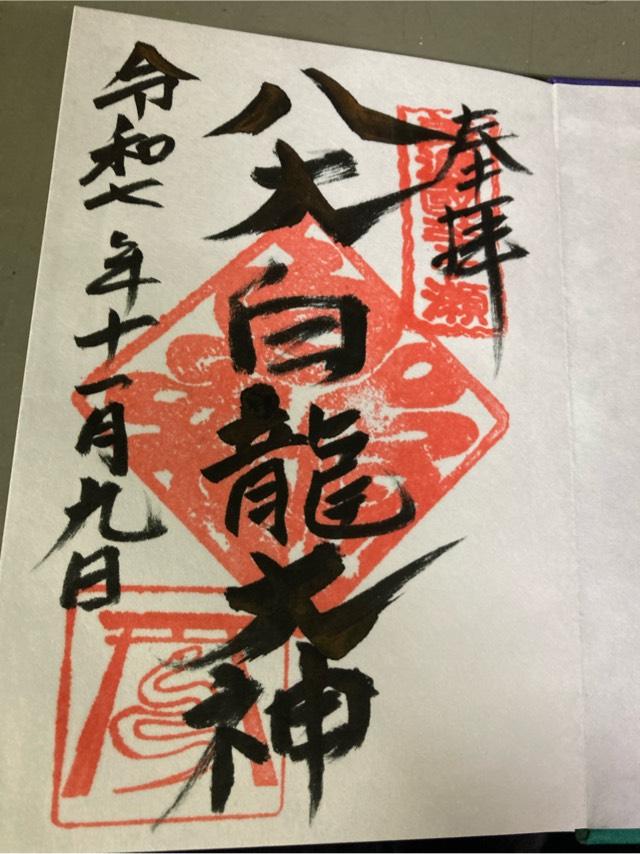 奉拝
八大白龍大神
令和七年十一月九日